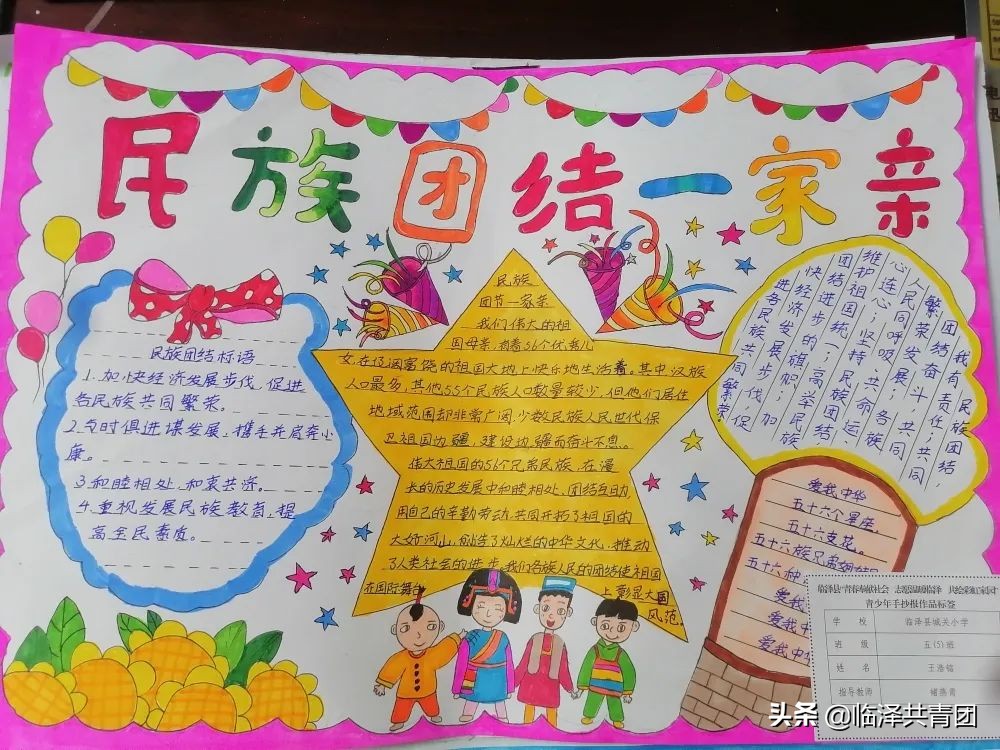 民族团结一家亲
民族团结标语
1.加快经济发展步伐，促进
各民族共同繁荣。
2.与时俱进谋发展，携手并肩奔小
康。
3.和睦相处，和衷共济。
4.重视发展民族教育，提
高全民素质。
民族
团节一家亲
我们伟大的祖
国母亲，有着56个优秀儿
女，在辽阔富饶的祖国大地上快乐地生活着。其中汉族
人口最多，其他55个民族人口数量较少，但他们居住
地域范围却非常广阔，少数民族人民世代保
卫祖国边疆，建设边疆而奋斗不息。
伟大祖国的56个兄弟民族，在漫
长的历史发展中和睦相处、团结互助，
用自己的辛勤劳动，共同开拓了祖国的
大好河山，创造了灿烂的中华文化，推动
了人类社会的进步。我们各族人民的团结使祖国
在国际舞台
上彰显大国
风范。
我有责任；共同
民族团结，
团结奋斗；共同
繁荣发展；各族
人民同呼吸、共命运、
心连心；坚持民族团结
维护祖国统一；高举民族
团结进步的旗帜；加
快经济发展步伐，促
进各民族共同繁荣
爱我中华
五十六个星座
五十六支花。
五十六族兄弟姐妹
五十六种
爱我
爱我中
爱我中华
临泽县"青春奉献社会 志愿温暖临泽 共绘彩虹家园"
青少年手抄报作品标签
学校 临泽县城关小学
班级 五(5)班
姓名 王浩铭
指导教师 褚燕青
头条 @临泽共青团